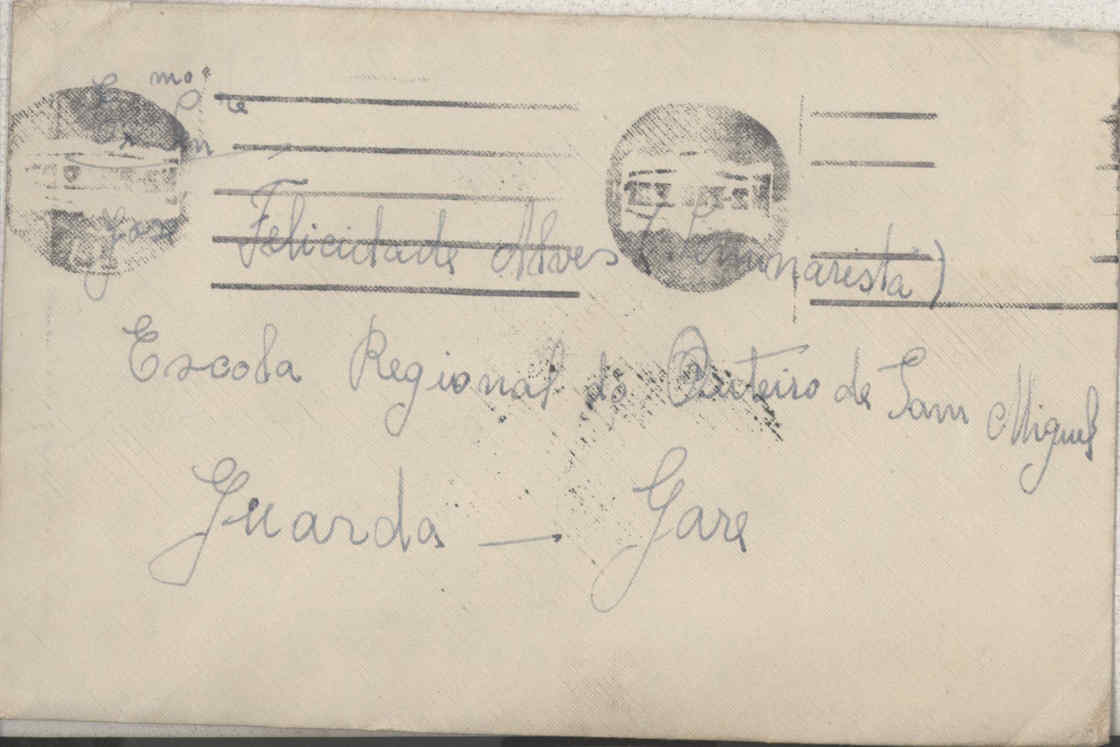 Ex.mo
José Felicidade Alves (Seminarista)
Escola Regional do Outeiro de Sam Miguel
Guarda — Gare